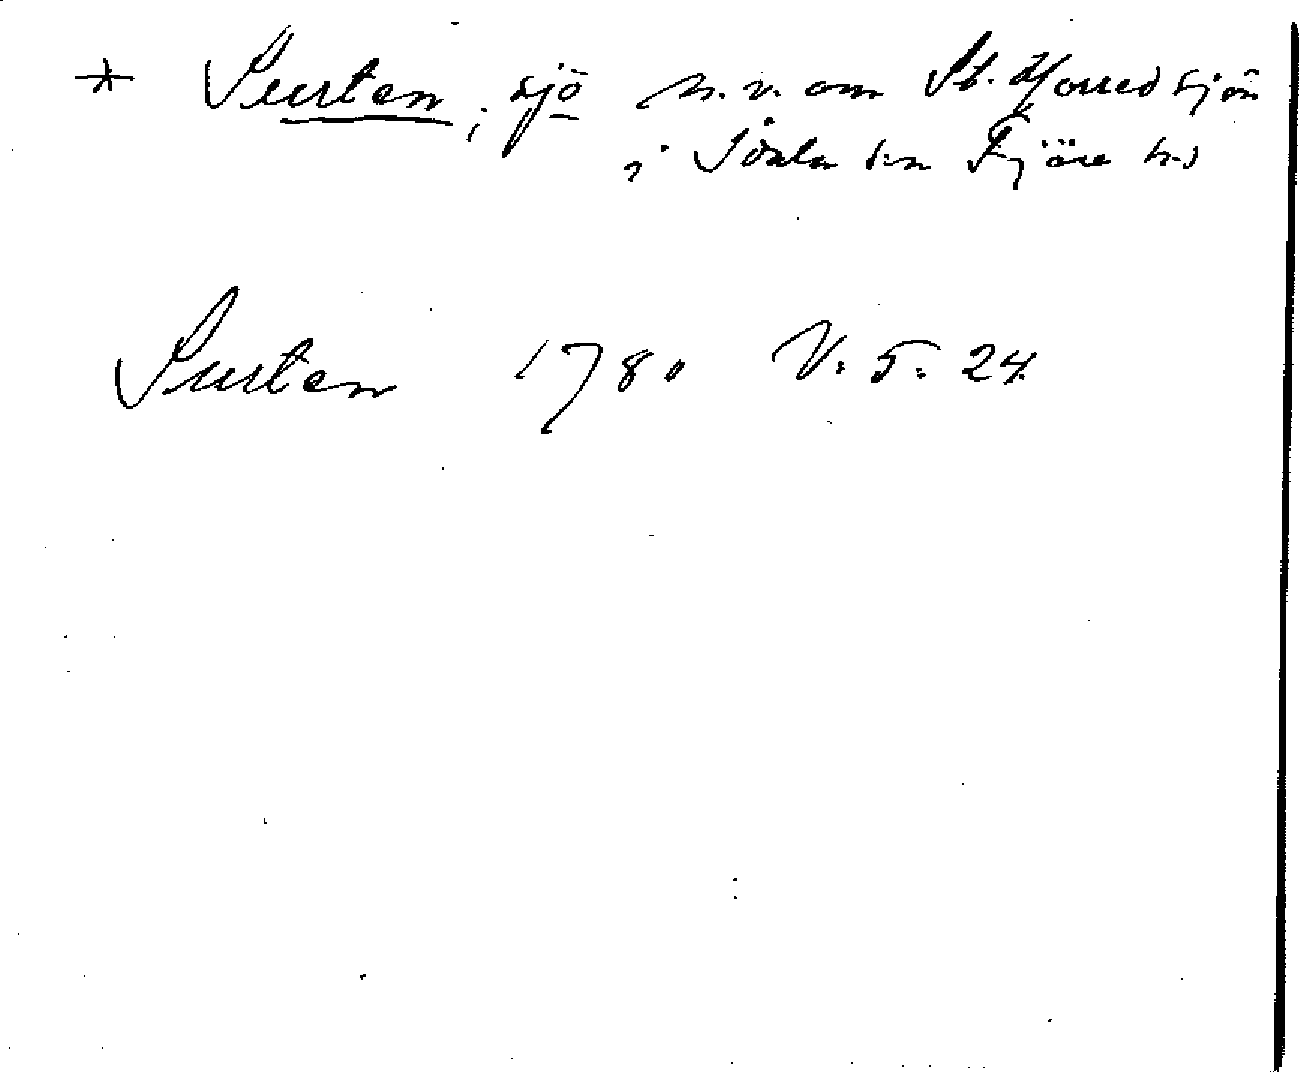 * Sursten, sjö n.v. om St. Horredsjön
i Idala sn Fjäre hd
Sursten 1780 V. 5. 24.